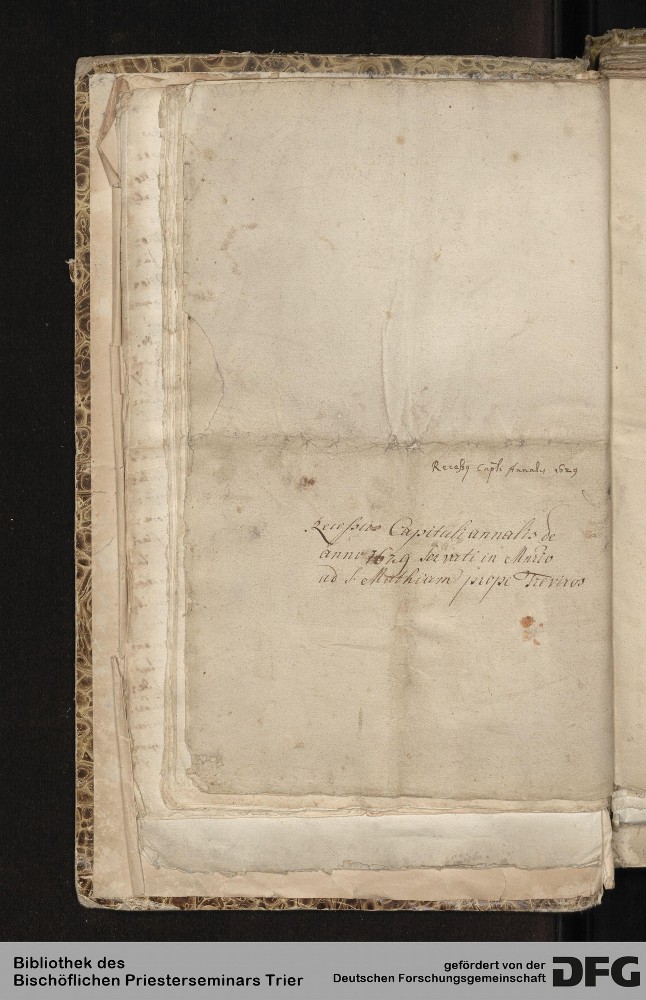 Recessus Capli Annalis 1629
Recessus Capituli annalis de
anno 1629 Servati in Martio
ad S. Mathiam prope Treviros
Bibliothek des
Bischöflichen Priesterseminars Trier
gefördert von der
Deutschen Forschungsgemeinschaft
DFG